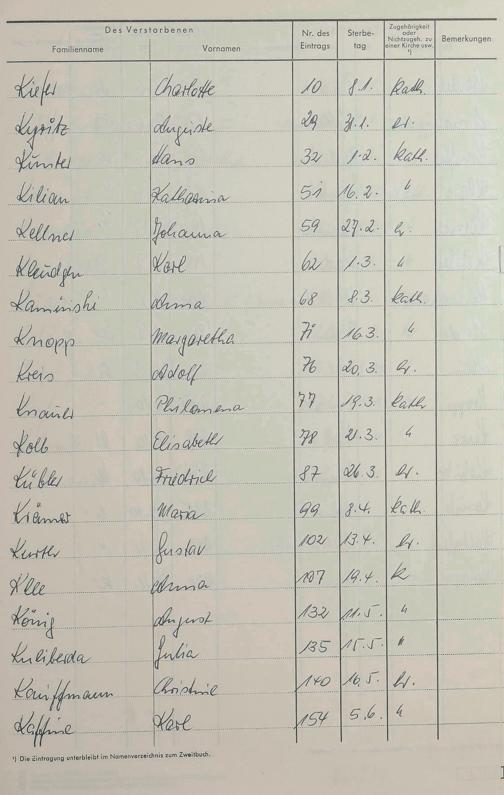 Des Verstorbenen
Familienname Vornamen Nr. des Eintrags Sterbe-tag Zugehörigkeit oder Nichtzugeh. zu einer Kirche usw. ¹) Bemerkungen
Kiefer Charlotte 10 8.1. kath.
Kyritz Auguste 29 31.1. ev.
Künster Hans 32 1.2. kath.
Kilian Katharina 51 16.2. "
Kellner Johanna 59 27.2. ev.
Kleudgen Karl 62 1.3. "
Kaminski Anna 68 8.3. kath.
Knopp Margaretha 71 16.3. "
Kreis Adolf 76 20.3. ev.
Knauer Philomena 77 19.3. kath
Kolb Elisabeth 78 21.3. "
Kübler Friedrich 87 26.3. ev.
Krämer Maria 99 8.4. kath.
Kurth Gustav 102 13.4. ev.
Klee Anna 107 19.4. k
König August 132 11.5. "
Kuliberda Julia 135 15.5. "
Kauffmann Christine 140 16.5. ev.
Karl 154 5.6. "
¹) Die Eintragung unterbleibt im Namenverzeichnis zum Zweitbuch.